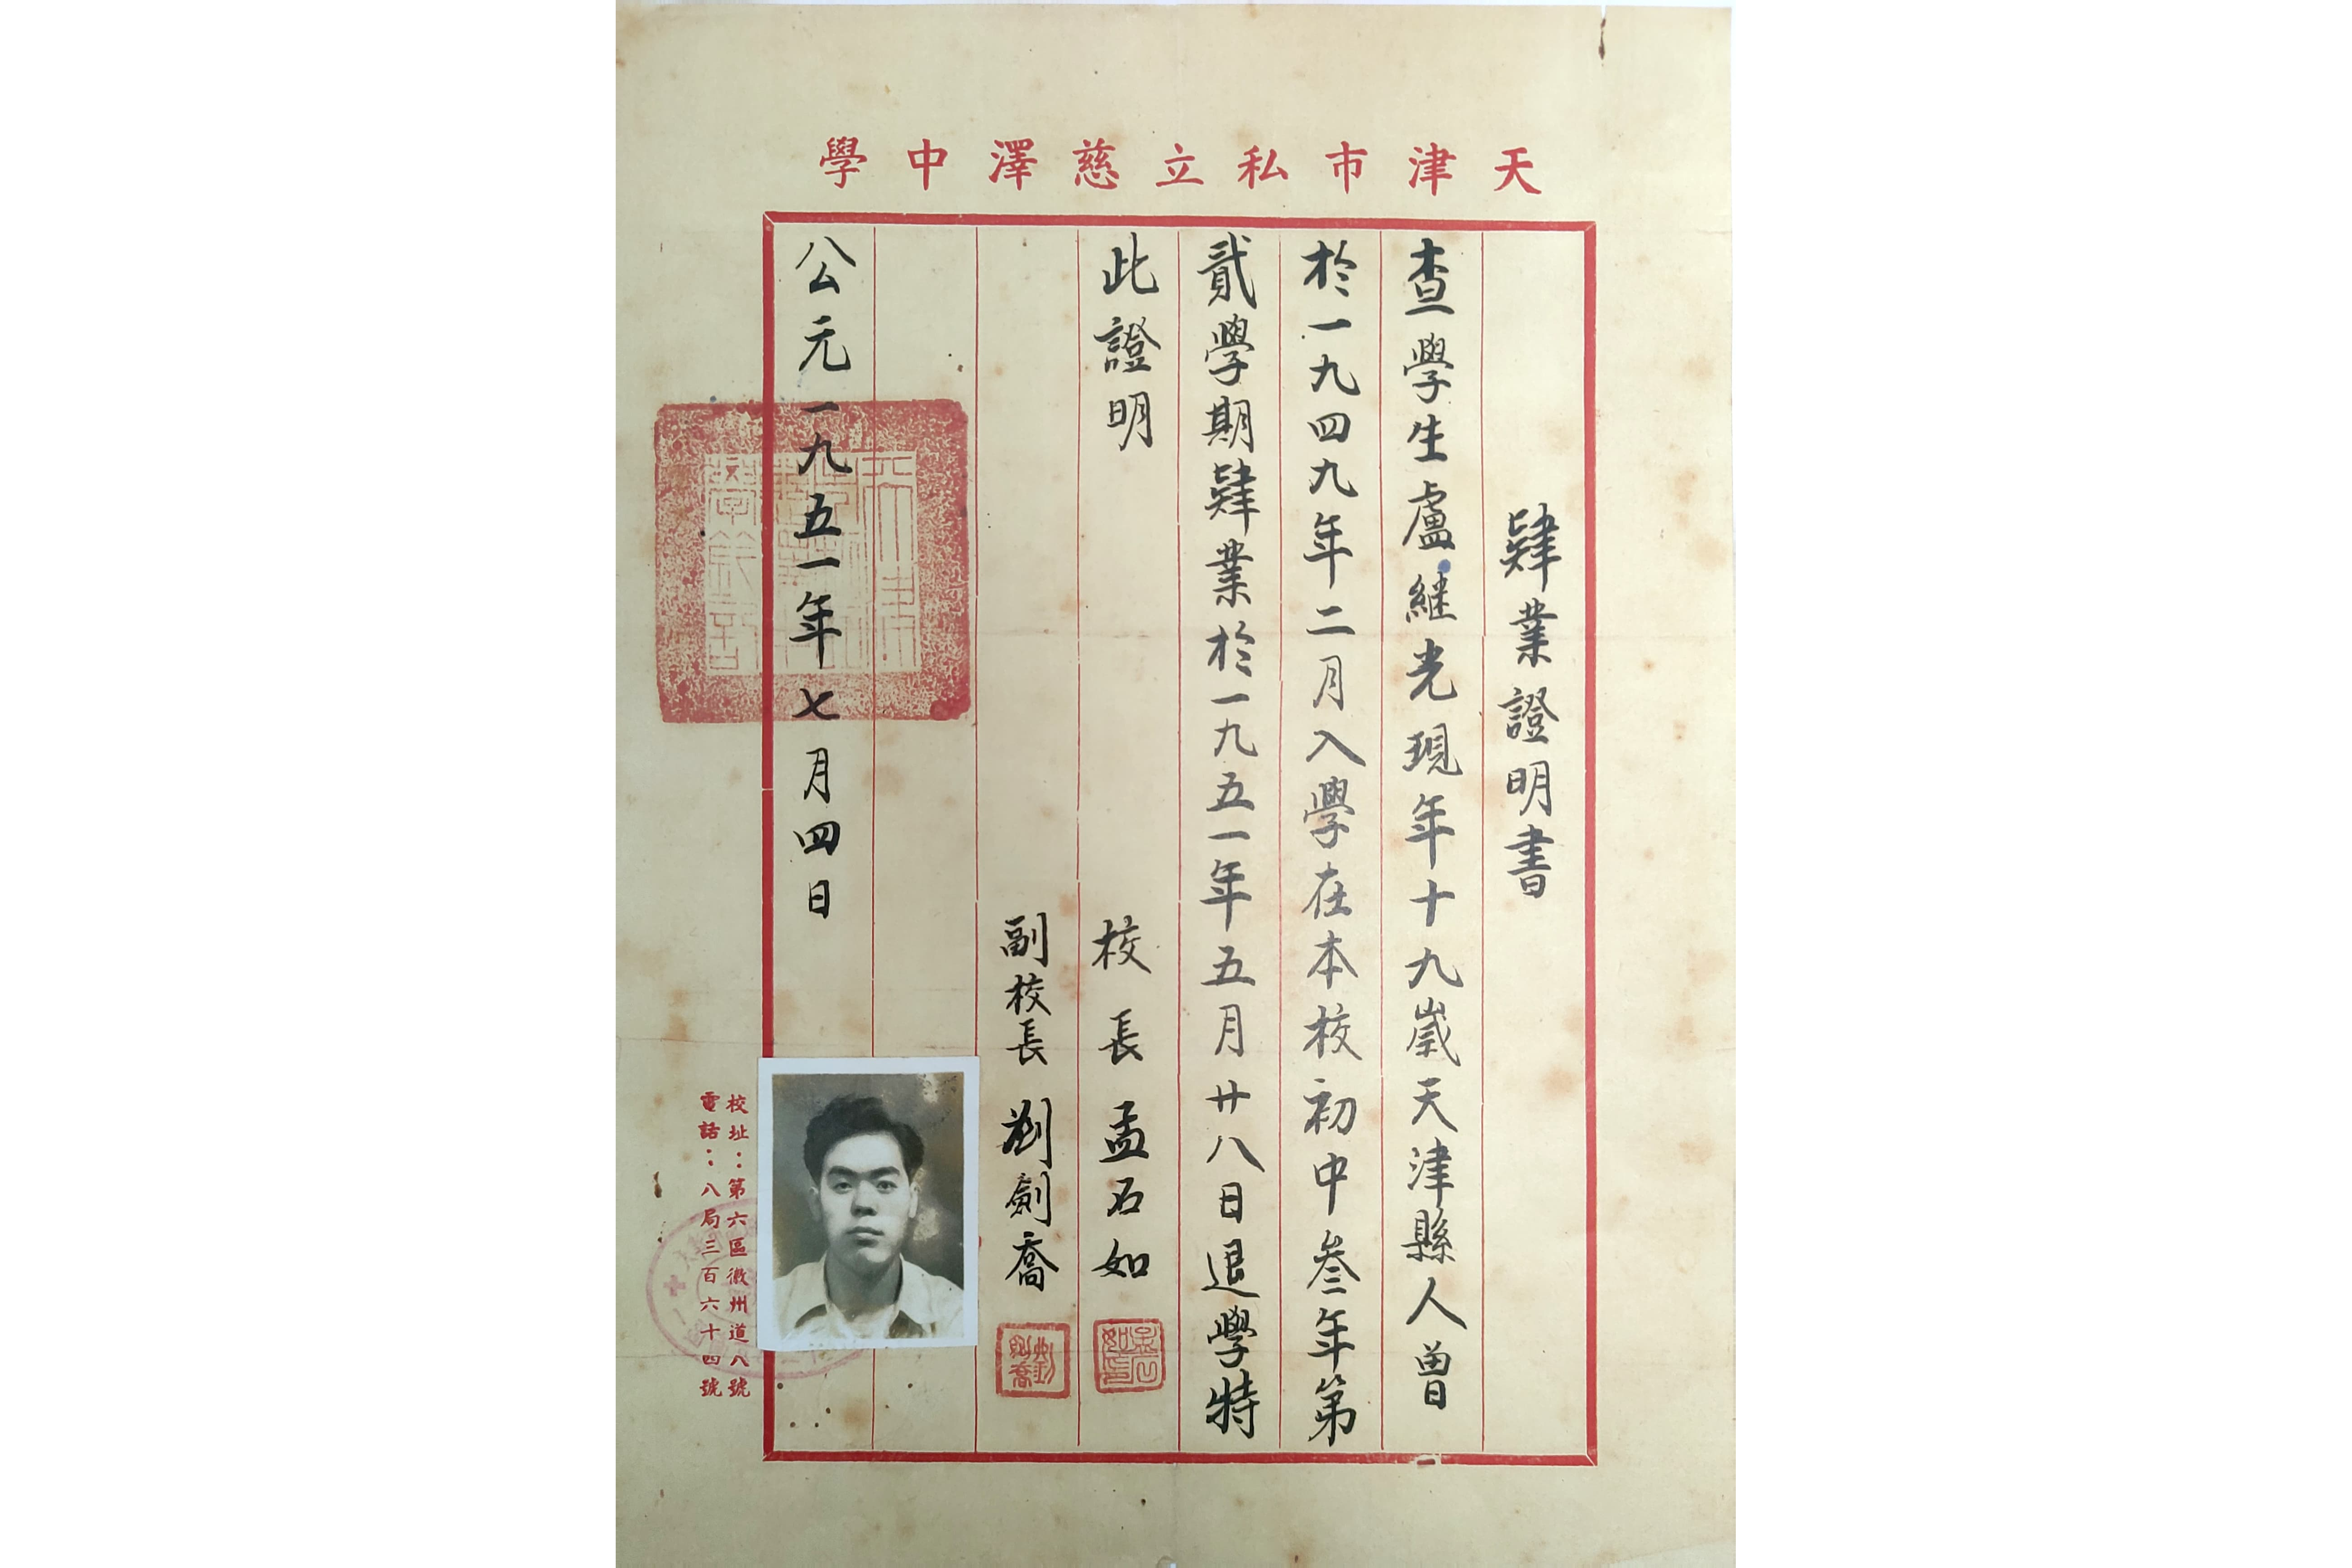 天津市私立慈澤中學
肄業證明書
查學生盧繼光現年十九歲天津縣人曾
於一九四九年二月入學在本校初中叁年第
貳學期肄業於一九五一年五月廿八日退學特
此證明
校長孟石如
副校長劉劍喬
公元一九五一年七月四日
校址：第六區徽州道八號
電話：八局三百六十四號